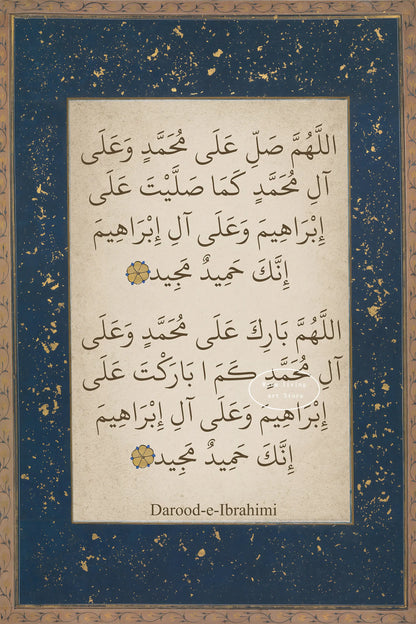 اللَّهُمَّ صَلِّ عَلَى مُحَمَّدٍ وَعَلَى
آلِ مُحَمَّدٍ كَمَا صَلَّيْتَ عَلَى
إِبْرَاهِيمَ وَعَلَى آلِ إِبْرَاهِيمَ
إِنَّكَ حَمِيدٌ مَجِيد
اللَّهُمَّ بَارِكْ عَلَى مُحَمَّدٍ وَعَلَى
آلِ مُحَمَّدٍ كَمَ ا بَارَكْتَ عَلَى
إِبْرَاهِيمَ وَعَلَى آلِ إِبْرَاهِيمَ
إِنَّكَ حَمِيدٌ مَجِيد
art Store
Darood-e-Ibrahimi